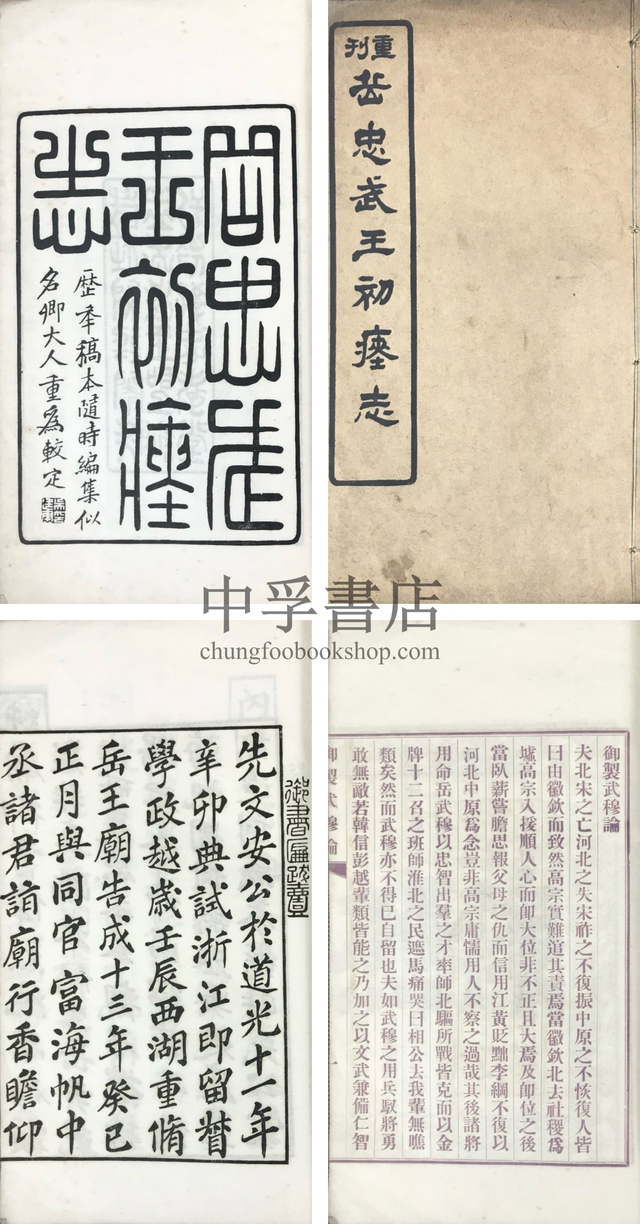 岳忠武
王初瘞
志
歷秊稿本隨時編集似
名卿大人重爲較定
重刊
岳忠武王初瘞志
中孚書店
chungfoobookshop.com
先文安公於道光十一年
辛卯典試浙江即留督
學政越歲壬辰西湖重脩
岳王廟告成十三年癸巳
正月與同官富海帆中
丞諸君詣廟行香瞻仰
御製武穆論
夫北宋之亡河北之失宋祚之不復振中原之不恢復人皆
曰由徽欽而致然高宗實難逭其責焉當徽欽北去社稷爲
墟高宗入援順人心而卽大位非不正且大焉及卽位之後
當臥薪嘗膽思報父母之仇而信用江黃貶黜李綱不復以
河北中原爲念豈非高宗庸懦用人不察之過哉其後諸將
用命岳武穆以忠智出羣之才率師北驅所戰皆克而以金
牌十二召之班師淮北之民遮馬痛哭曰相公去我輩無噍
類矣然而武穆亦不得已自留也夫如武穆之用兵馭將勇
敢無敵若韓信彭越輩類皆能之乃加之以文武兼備仁智
御製武穆論
一